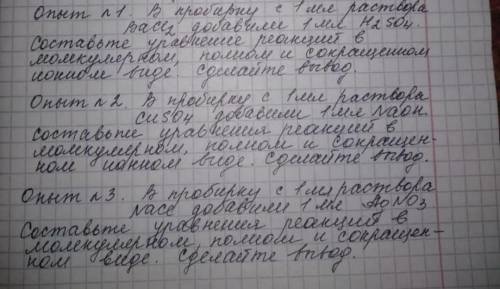 Опыт №1. В пробирку с 1 мл раствора
BaCl2 добавили 1 мл H2SO4.
Составьте уравнение реакций в
молекулярном, полном и сокращенном
ионном виде. Сделайте вывод.
Опыт №2. В пробирку с 1 мл раствора
CuSO4 добавили 1 мл NaOH.
Составьте уравнения реакций в
молекулярном, полном и сокращен-
ном ионном виде. Сделайте вывод.
Опыт №3. В пробирку с 1 мл раствора
NaCl добавили 1 мл AgNO3
Составьте уравнения реакций в
молекулярном, полном и сокращен-
ном виде. Сделайте вывод.